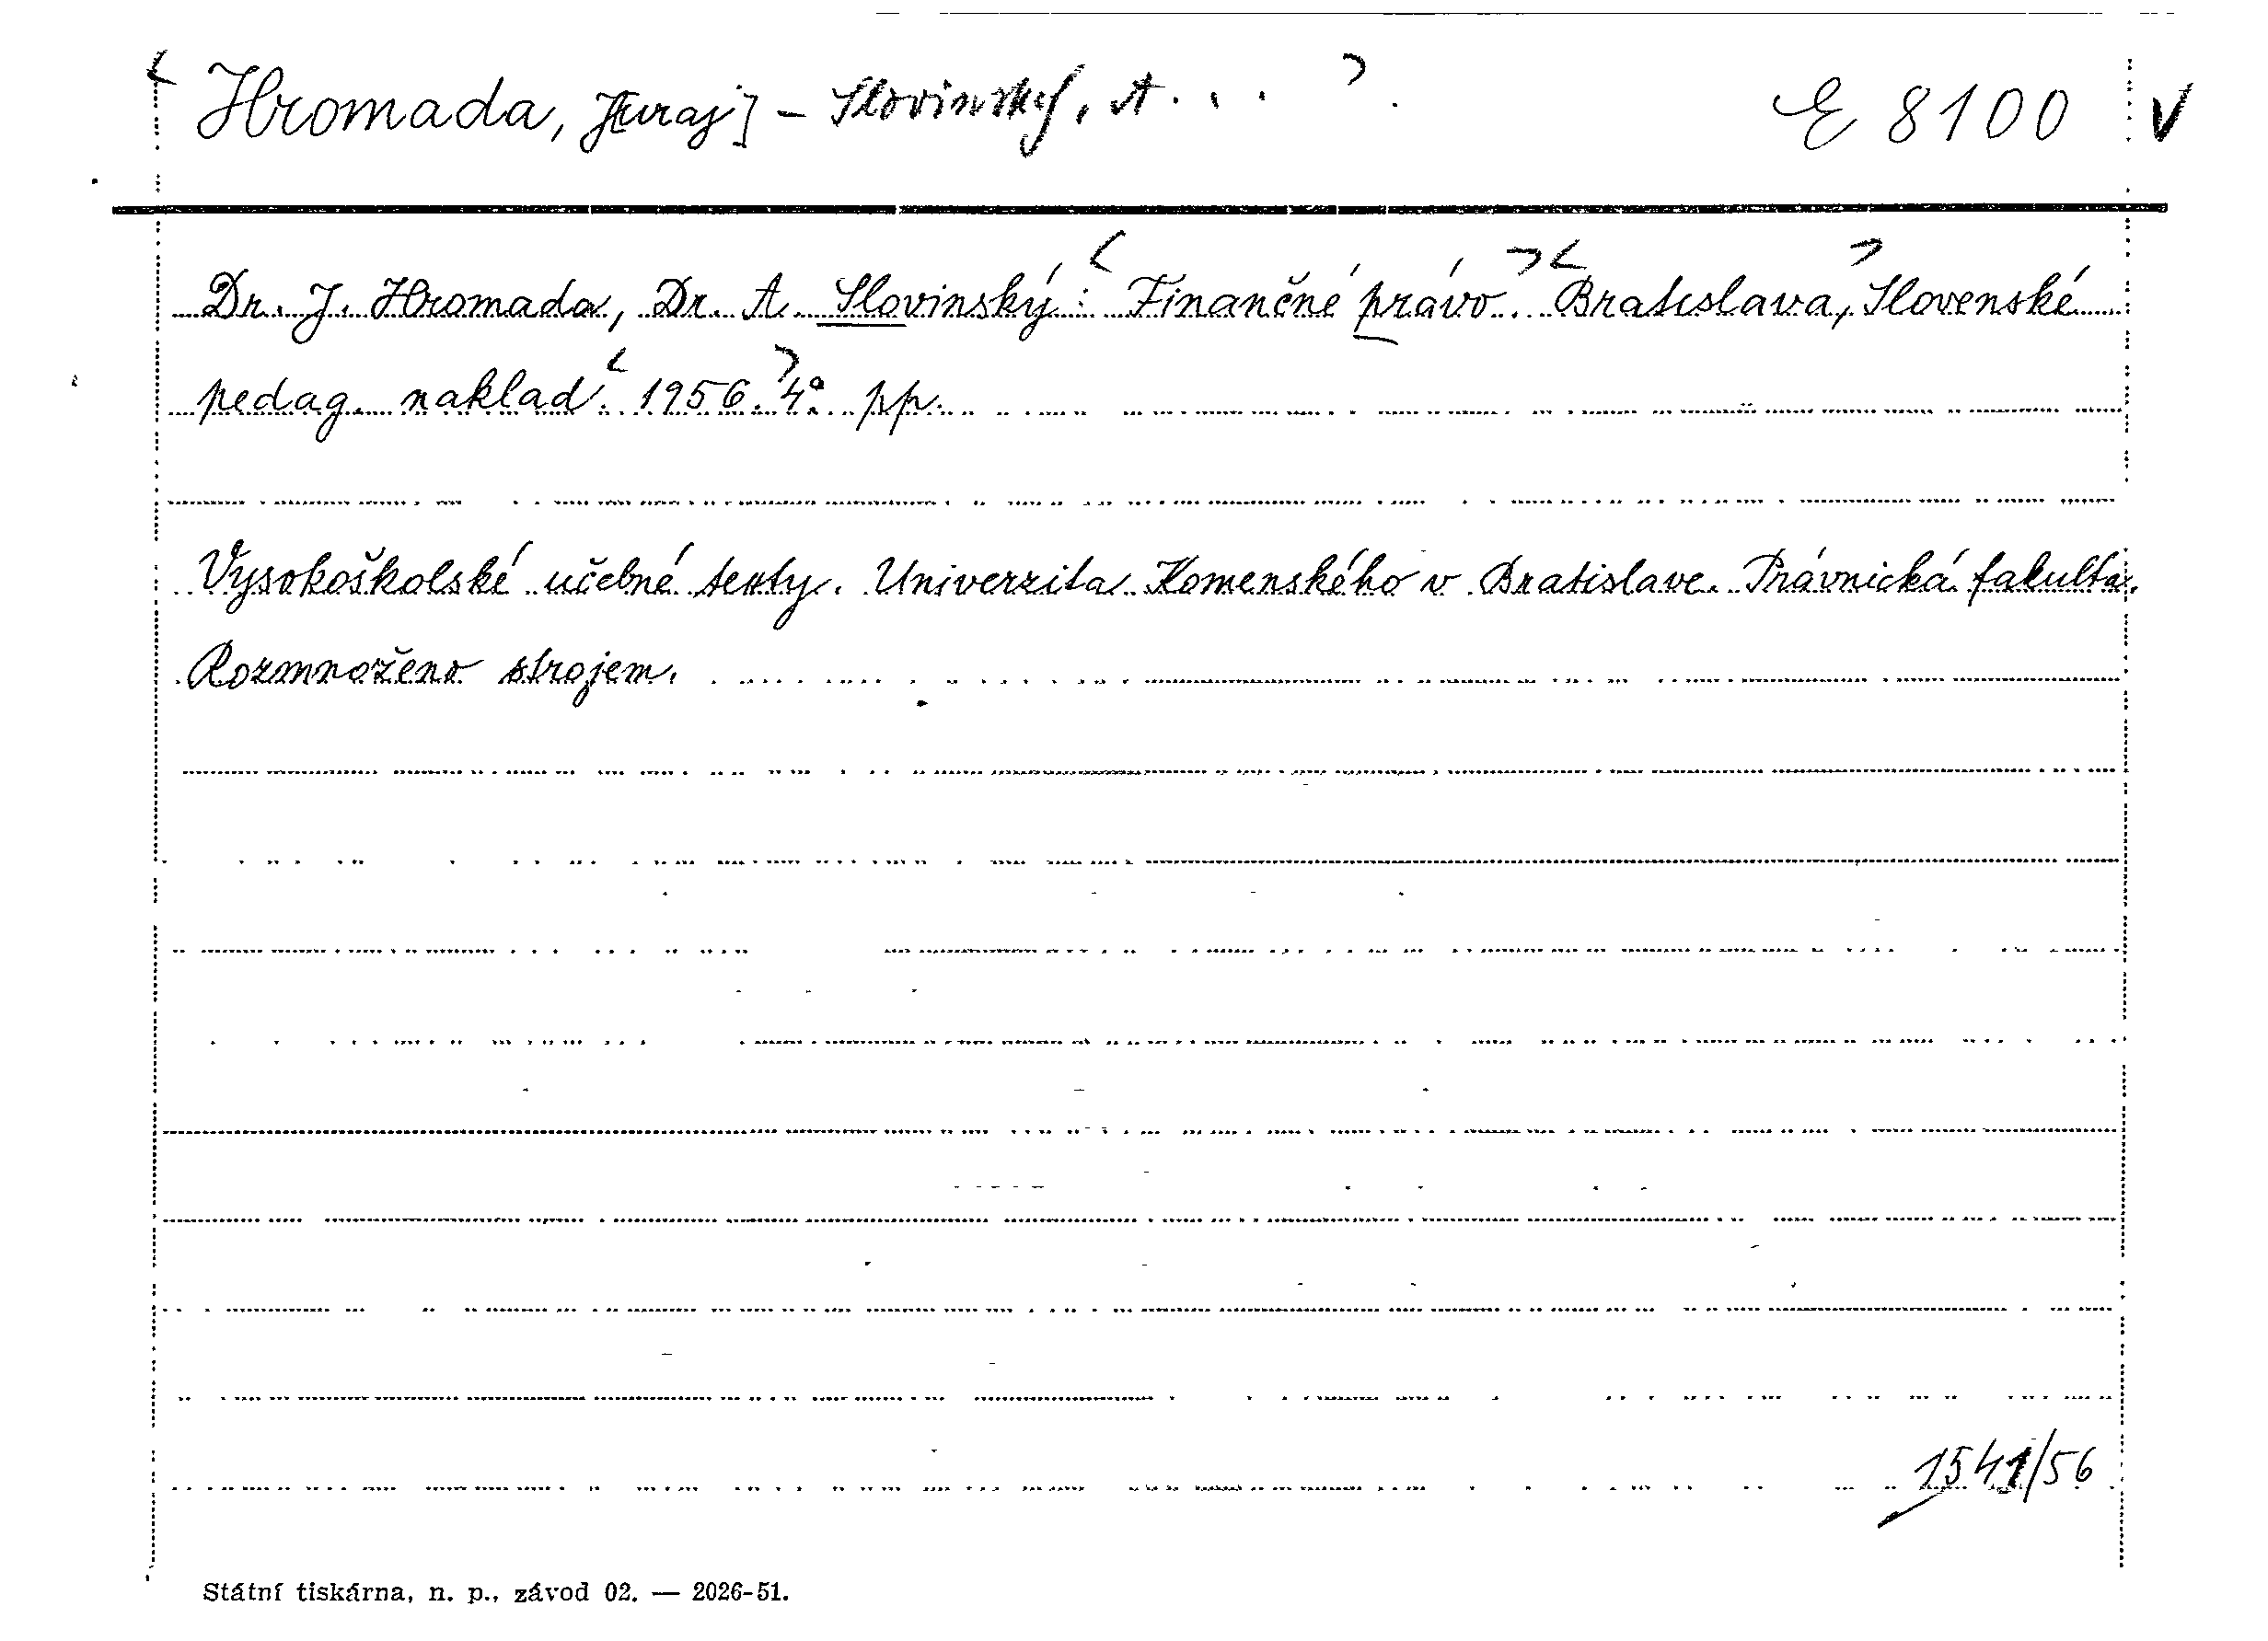 < Hromada, J[uraj] - Slovinský, A. . . > E 8100 V
Dr. J. Hromada, Dr. A. Slovinský: < Finančné právo. > < Bratislava, > Slovenské
pedag. naklad. < 1956. > 4° pp.
Vysokoškolské učebné texty. Univerzita Komenského v Bratislave. Právnická fakulta.
Rozmnoženo strojem.
1541/56
Státní tiskárna, n. p., závod 02. — 2026-51.